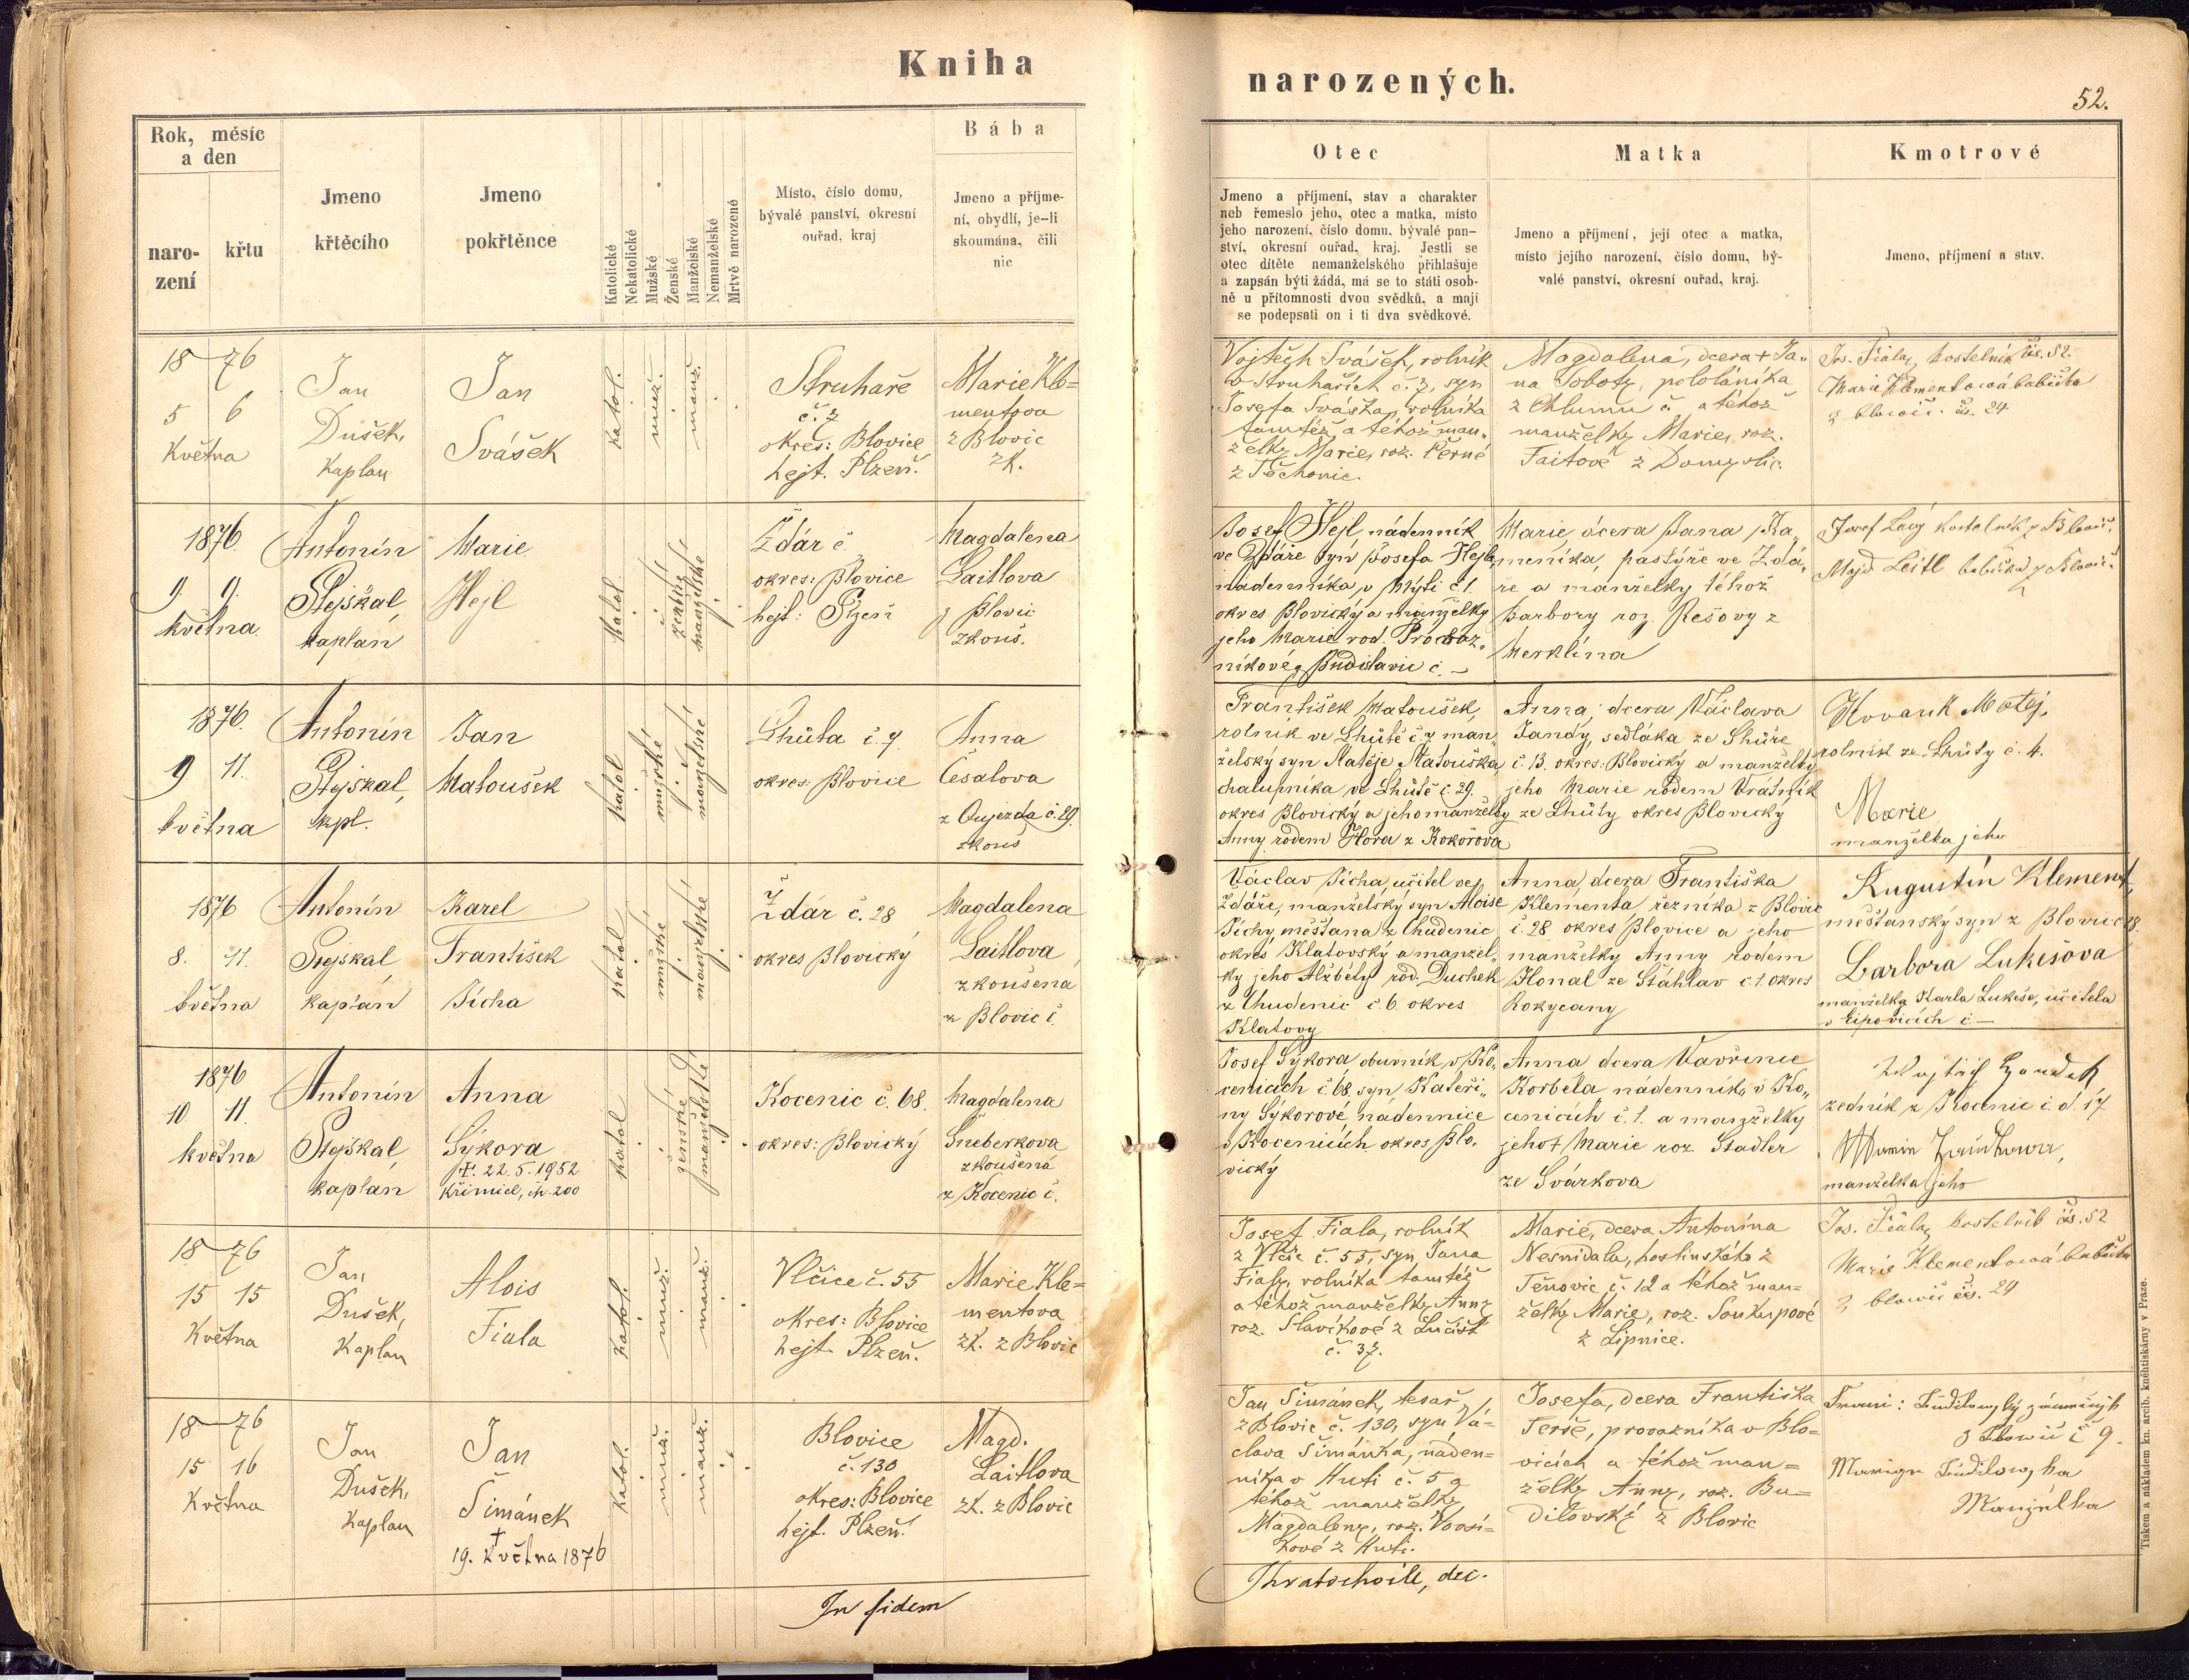 Kniha
narozených.
52.
Rok, měsíc
a den
naro-
zení
křtu
Jmeno
křtěcího
Jmeno
pokřtěnce
Katolické
Nekatolické
Mužské
Ženské
Manželské
Nemanželské
Mrtvě narozené
Místo, číslo domu,
bývalé panství, okresní
ouřad, kraj
Bába
Jmeno a příjme-
ní, obydlí, je-li
skoumána, čili
nic
Otec
Jmeno a příjmení, stav a charakter
neb řemeslo jeho, otec a matka, místo
jeho narození, číslo domu, bývalé pan-
ství, okresní ouřad, kraj. Jestli se
otec dítěte nemanželského přihlašuje
a zapsán býti žádá, má se to státi osob-
ně u přítomnosti dvou svědků, a mají
se podepsati on i ti dva svědkové.
Matka
Jmeno a příjmení, její otec a matka,
místo jejího narození, číslo domu, bý-
valé panství, okresní ouřad, kraj.
Kmotrové
Jmeno, příjmení a stav.
18—76
5 6
Května
Jan
Dušek,
Kaplan
Jan
Svášek
katol.
muž.
manž.
Struhaře
č. 7
okres: Blovice
hejt. Plzeň.
Marie Kle=
mentova
z Blovic
zk.
Vojtěch Svášek, rolník
v Struhařích č. 7, syn
Josefa Sváška, rolníka
tamtéž a téhož man„
želky Marie, roz. Černé
z Těchonic.
Magdalena, dcera + Ja„
na Soboty, pololáníka
z Chlumu č. a téhož
manželky Marie, roz.
Faitové z Domyslic.
Jos. Fiala, kostelník čís. 52.
Marie Klementová babička
z blovic čís. 24
1876.
9. 9.
května.
Antonín
Stejskal,
kaplán
Marie
Hejl
katol.
ženské
manželské
Ždár č.
okres: Blovice
hejt: Plzeň
Magdalena
Laitlova
z Blovic
zkouš.
Josef Hejl, nádenník
ve Ždáře syn Josefa Hejla,
nádenníka, v Mýti č 1.
okres Blovický a manželky
jeho Marie rod. Procház„
níkové z Budislavic č. –
Marie, dcera Jana Ka„
meníka, pastýře ve Zdá„
ře a manželky téhož
Barbory roz. Rešovy z
Merklína
Josef kostelník z Blovic.
Majd Leitl babička z Blovic.
1876.
9 11.
května
Antonín
Stejskal,
kpl.
Jan
Matoušek
katol
mužské
manželské
Lhůta č. 7
okres: Blovice
Anna
Česalova
z Oujezda č. 29.
zkouš
František Matoušek,
rolník ve Lhůtě č. 7 man„
želský syn Matěje Matouška,
chalupníka ve Lhůtě č. 29.
okres Blovický a jeho manželky
Anny rodem Hora z Kokořova
Anna dcera Václava
Jandy, sedláka ze Lhůte
č. 13. okres: Blovický a manželky
jeho Marie rodem Vrátník
ze Lhůty okres Blovický
Hovank Matěj,
rolník ze Lhůty č. 4.
Marie
manželka jeho
1876
8. 11.
května
Antonín
Stejskal,
kaplán
Karel
František
Pícha
katol
mužské
manželské
Ždár č. 28
okres Blovický
Magdalena
Laitlova,
zkoušená
z Blovic č.
Václav Pícha, učitel ve
Ždáře, manželský syn Aloise
Píchy, měšťana z Chudenic
okres Klatovský a manžel„
ky jeho Alžběty rod. Duchek
z Chudenic č. 6. okres
Klatovy
Anna, dcera Františka
Klementa řezníka z Blovic
č. 28 okres Blovice a jeho
manželky Anny rodem
Honal ze Stáhlav č. 1. okres
Rokycany
Augustin Klement,
měšťanský syn z Blovic 28
Barbora Lukešova
manželka Karla Lukeše, učitele
v Lipovicích č. –
1876
10 11.
května
Antonín
Stejskal,
kaplán
Anna
Sýkora
✝. 22. 5. 1952
Křimice, čp. 200
katol
ženské
manželské
Kocenic č. 68.
okres: Blovický
Magdalena
Sneberkova
zkoušená
z Kocenic č.
Josef Sýkora, obuvník, v Ko„
cenicích č. 68, syn Kateři„
ny Sýkorové nadennice
v Kocenicích okres Blo„
vický
Anna dcera Vavřince
Korbela nádenníka, v Ko„
cenicích č. 1. a manželky
jeho + Marie roz. Stadler
ze Svárkova
zedník z Kocenic č. d. 17
manželka jeho
18—76
15 15
Května
Jan
Dušek,
Kaplan
Alois
Fiala
katol.
muž.
manž.
Vlčice č. 55
okres: Blovice
hejt. Plzeň.
Marie Kle=
mentova
zk. z Blovic
Josef Fiala, rolník
z Vlčic č. 55, syn Jana
Fialy, rolníka tamtéž
a téhož manželky Anny
roz. Slavíkové z Lučišt
č. 37.
Marie, dcera Antonína
Nesnídala, hostinského z
Těnovic č. 12 a téhož man=
želky Marie, roz. Soukupové
z Lipnice.
Jos. Fiala, kostelník čís. 52
Marie Klementová babička
z blovic čís. 24
18—76
15 16
Května
Jan
Dušek,
Kaplan
Jan
Šimánek
✝
19. Května 1876
katol.
muž.
manž.
Blovice
č. 130
okres: Blovice
hejt. Plzeň.
Magd.
Laitlova
zk. z Blovic
Jan Šimánek, tesař
z Blovic č. 130, syn Vá=
clava Šimánka, náden=
níka v Huti č. 5 a
téhož manželky,
Magdaleny, roz. Voosí=
kové z Huti.
Josefa, dcera Františka
Terše, provazníka v Blo=
vicích a téhož man=
želky Anny, roz. Bu=
dilovský z Blovic
z Blowic č 9.
Manželka
In fidem
dec.
Tiskem a nákladem kn. arcib. kněhtiskárny v Praze.